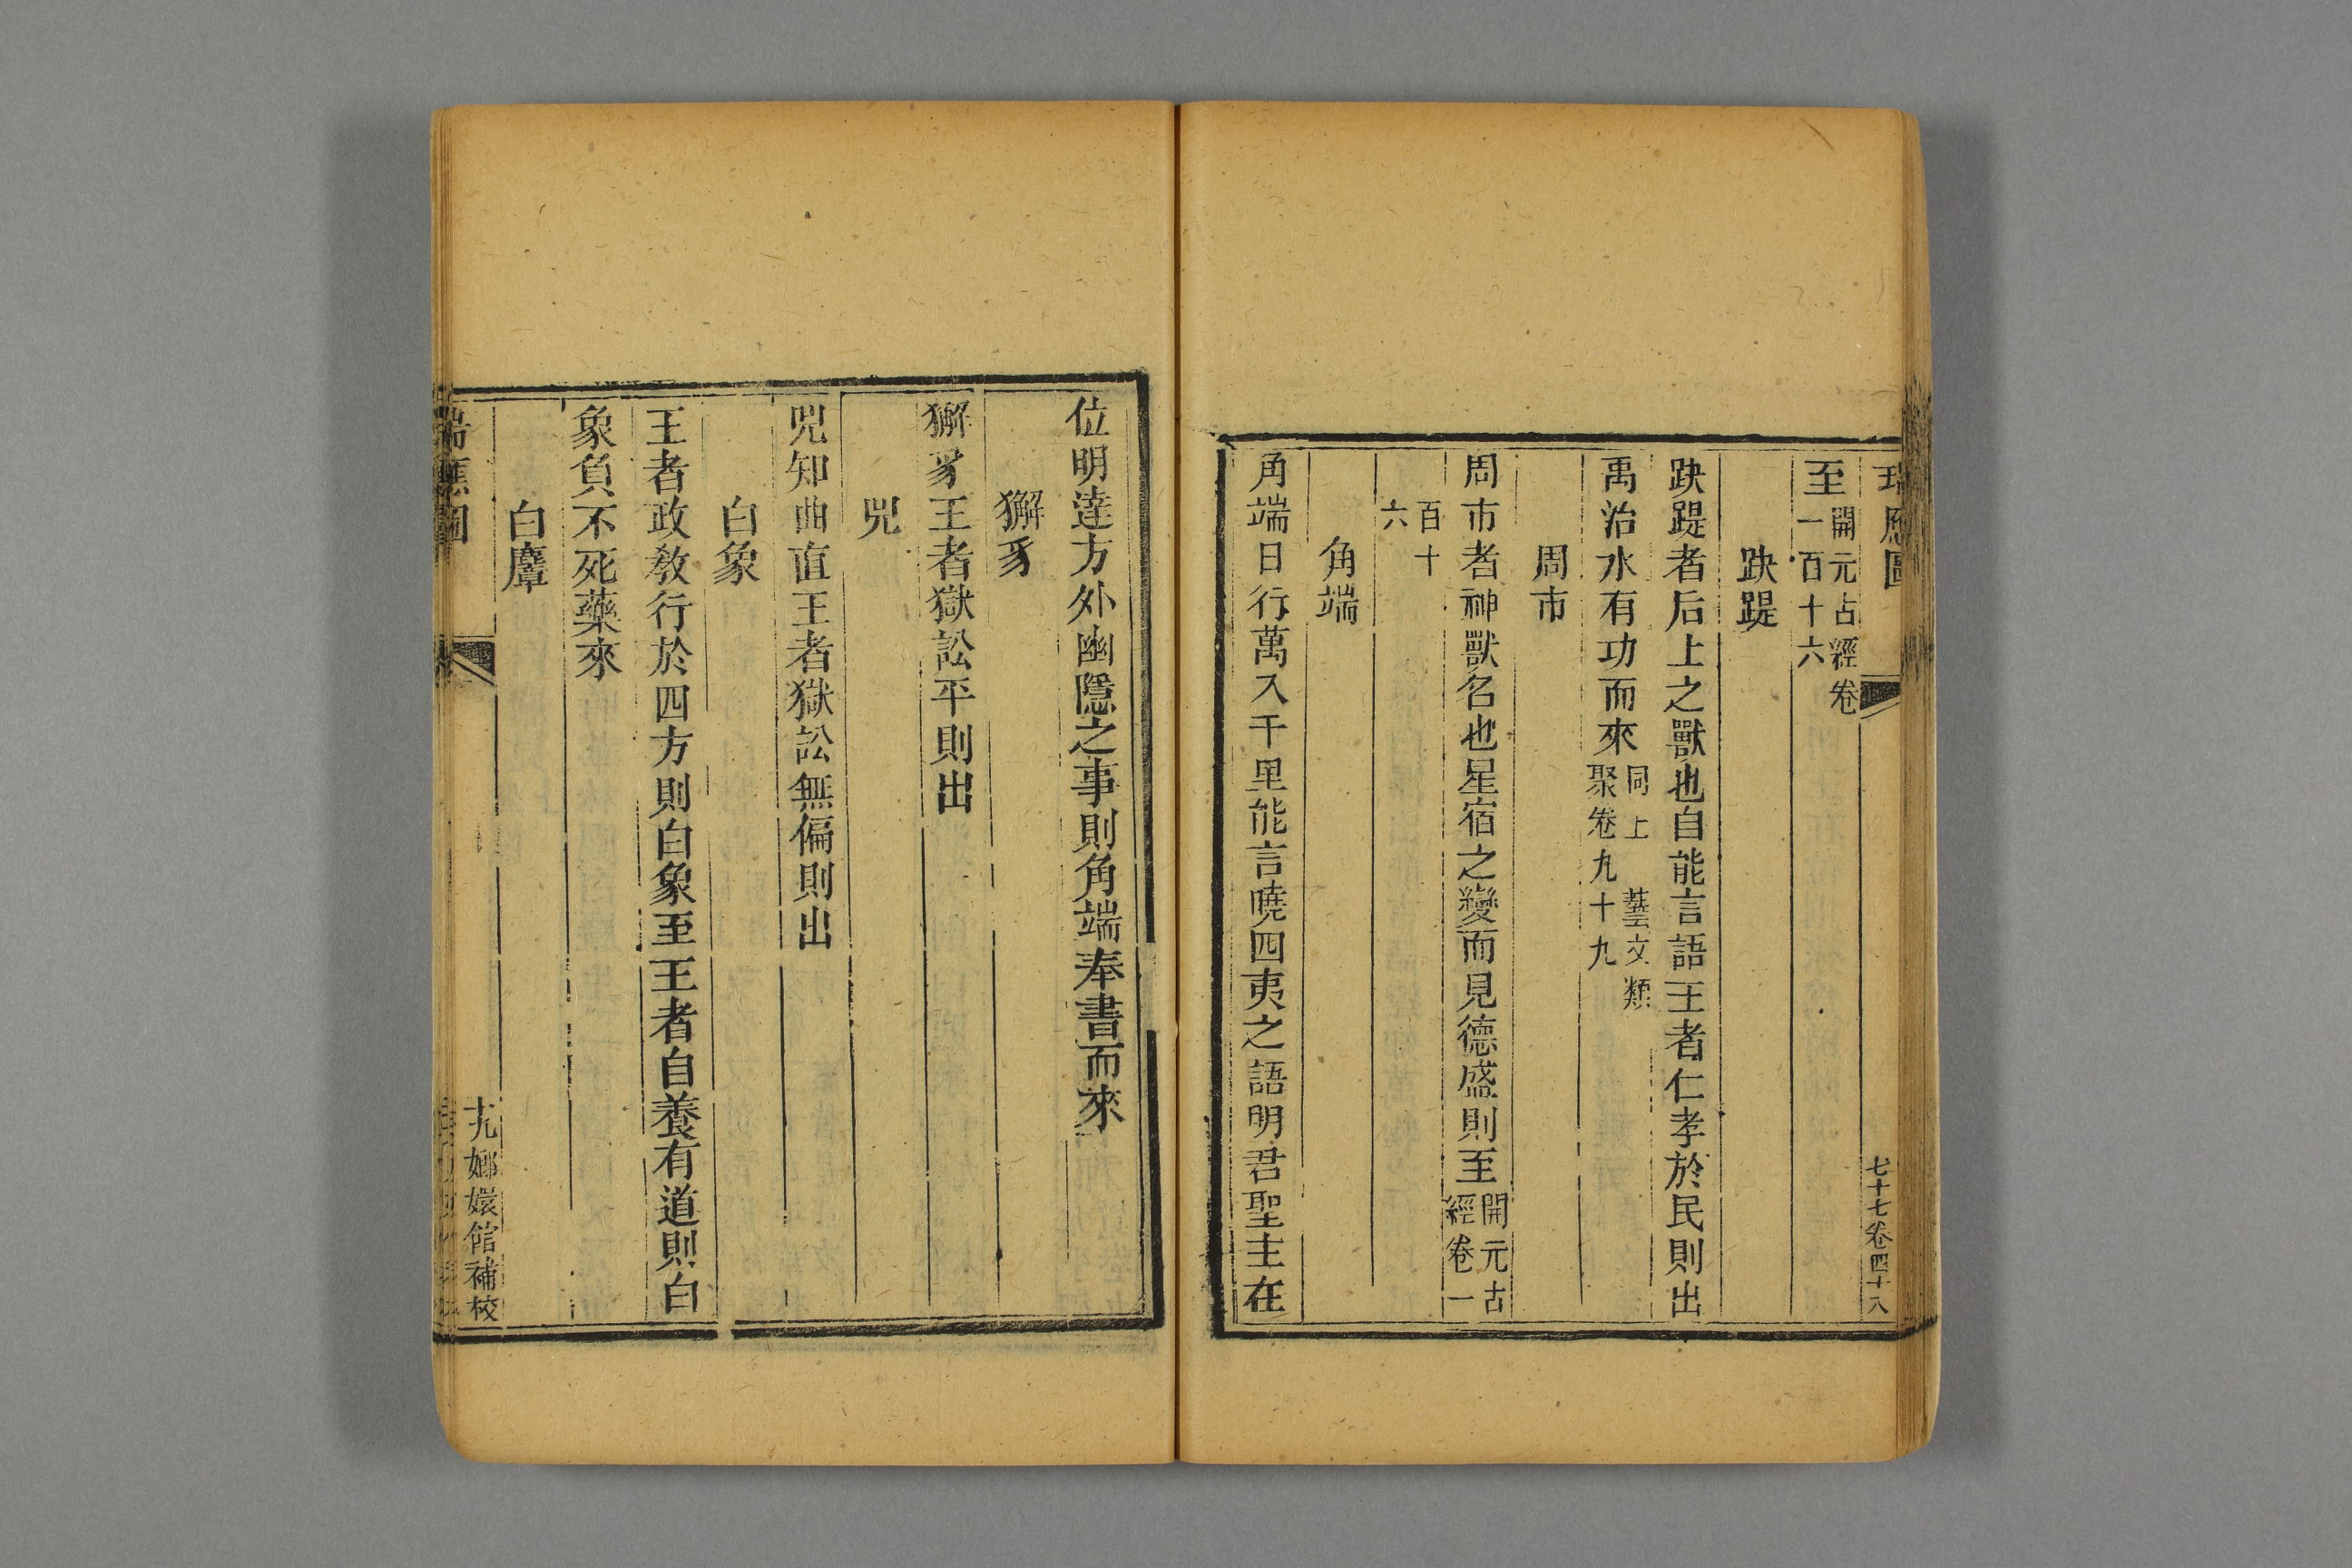 瑞應圖 七十七卷四十八
至開元占經卷一百十六
趹踶
趹踶者后土之獸也自能言語王者仁孝於民則出
禹治水有功而來同上 藝文類聚卷九十九
周市
周市者神獸名也星宿之變而見德盛則至開元占經卷一
百十六
角端
角端日行萬八千里能言曉四夷之語明君聖主在
位明達方外幽隱之事則角端奉書而來
獬豸
獬豸王者獄訟平則出
兕
兕知曲直王者獄訟無偏則出
白象
王者政敎行於四方則白象至王者自養有道則白
象負不死藥來
白麞
瑞應圖 十九嫏嬛館補校